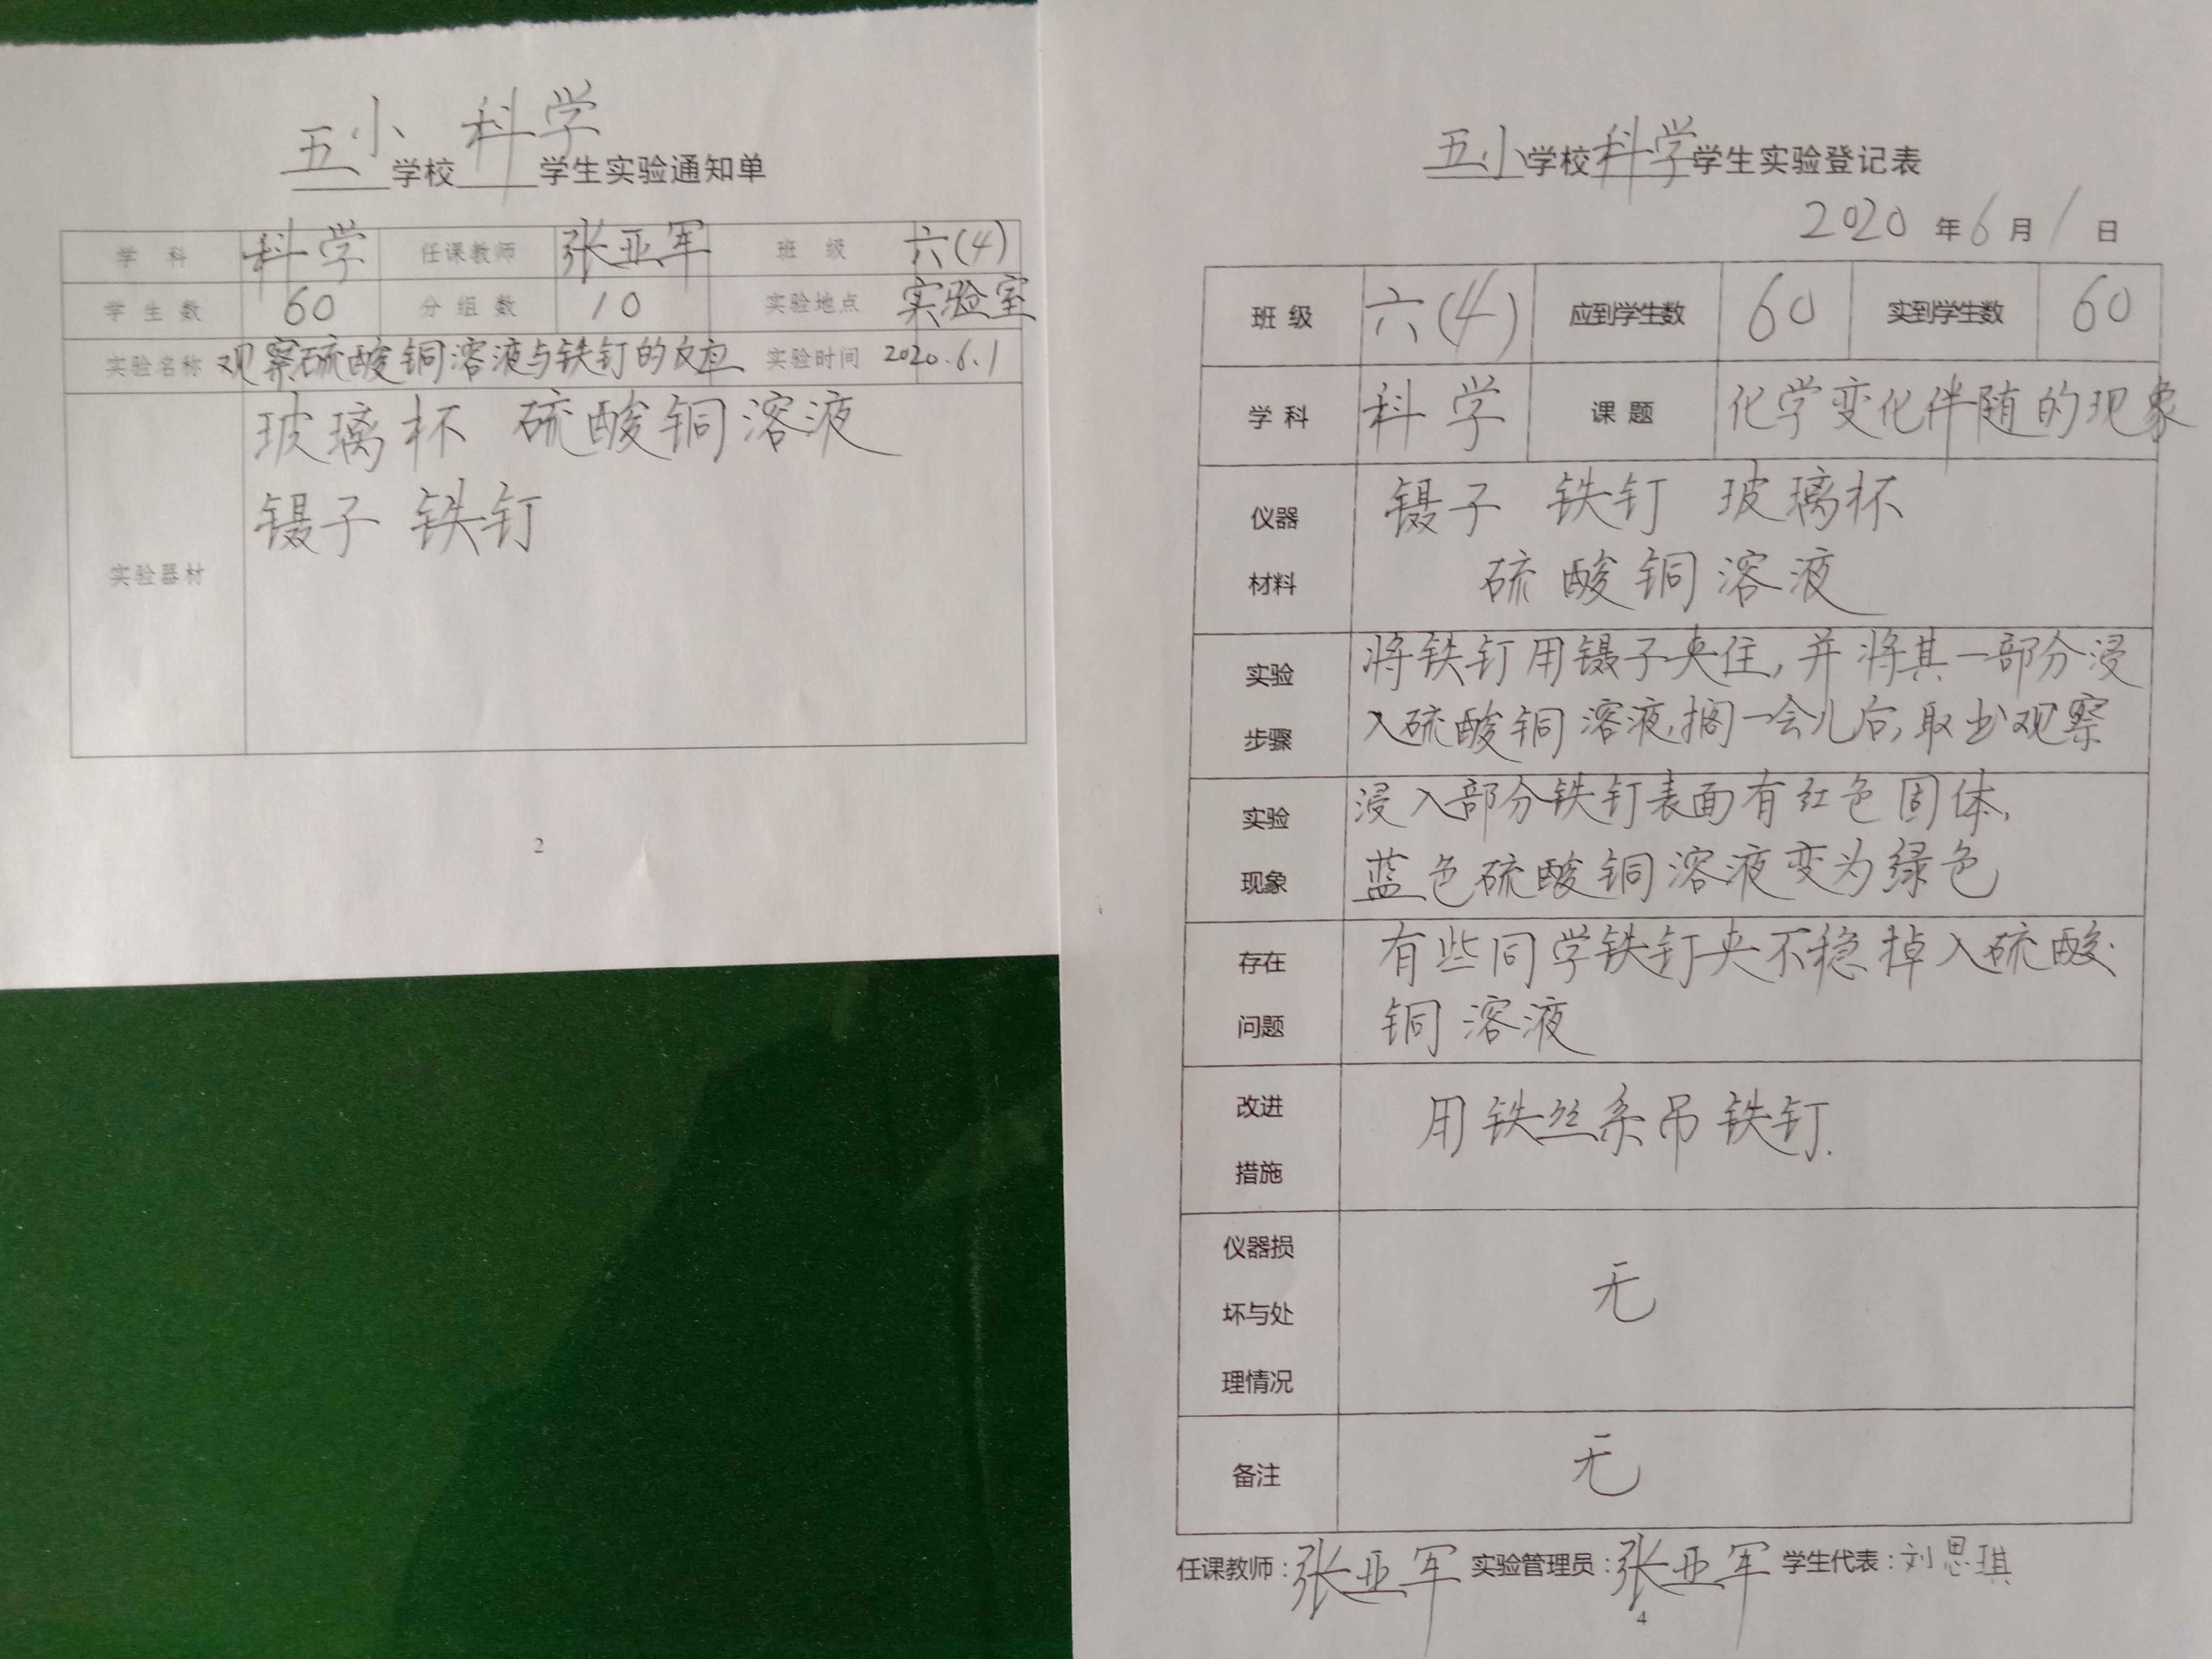 五小学校科学学生实验通知单
学 科 科学 任课教师 张亚军 班 级 六(4)
学 生 数 60 分 组 数 10 实验地点 实验室
实验名称 观察硫酸铜溶液与铁钉的反应 实验时间 2020.6.1
玻璃杯 硫酸铜溶液
镊子 铁钉
实验器材
2
五小学校科学学生实验登记表
2020年6月1日
班 级 六(4) 应到学生数 60 实到学生数 60
学 科 科学 课 题 化学变化伴随的现象
仪器 镊子 铁钉 玻璃杯
材料 硫酸铜溶液
实验 将铁钉用镊子夹住,并将其一部分浸
步骤 入硫酸铜溶液,搁一会儿后,取出观察
实验 浸入部分铁钉表面有红色固体,
现象 蓝色硫酸铜溶液变为绿色
存在 有些同学铁钉夹不稳掉入硫酸
问题 铜溶液
改进 用铁丝系吊铁钉.
措施
仪器损
坏与处 无
理情况
备注 无
任课教师:张亚军 实验管理员:张亚军 学生代表:刘思琪
4